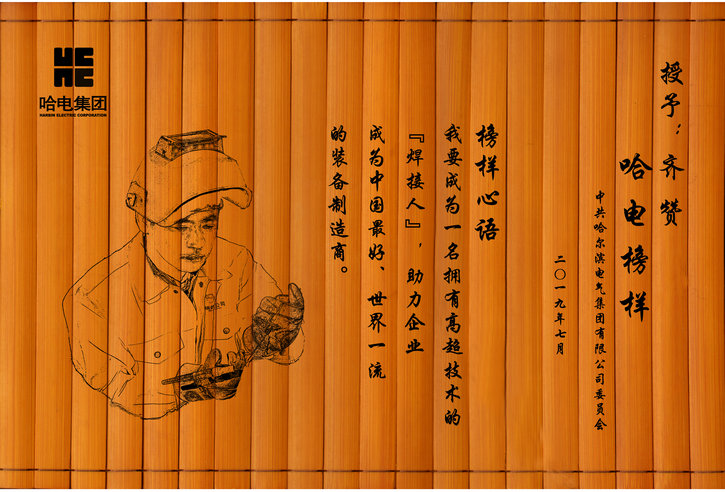 哈电集团
HARBIN ELECTRIC CORPORATION
授予：齐赞
哈电榜样
中共哈尔滨电气集团有限公司委员会
二〇一九年七月
榜样心语
我要成为一名拥有高超技术的
『焊接人』，助力企业
成为中国最好、世界一流
的装备制造商。